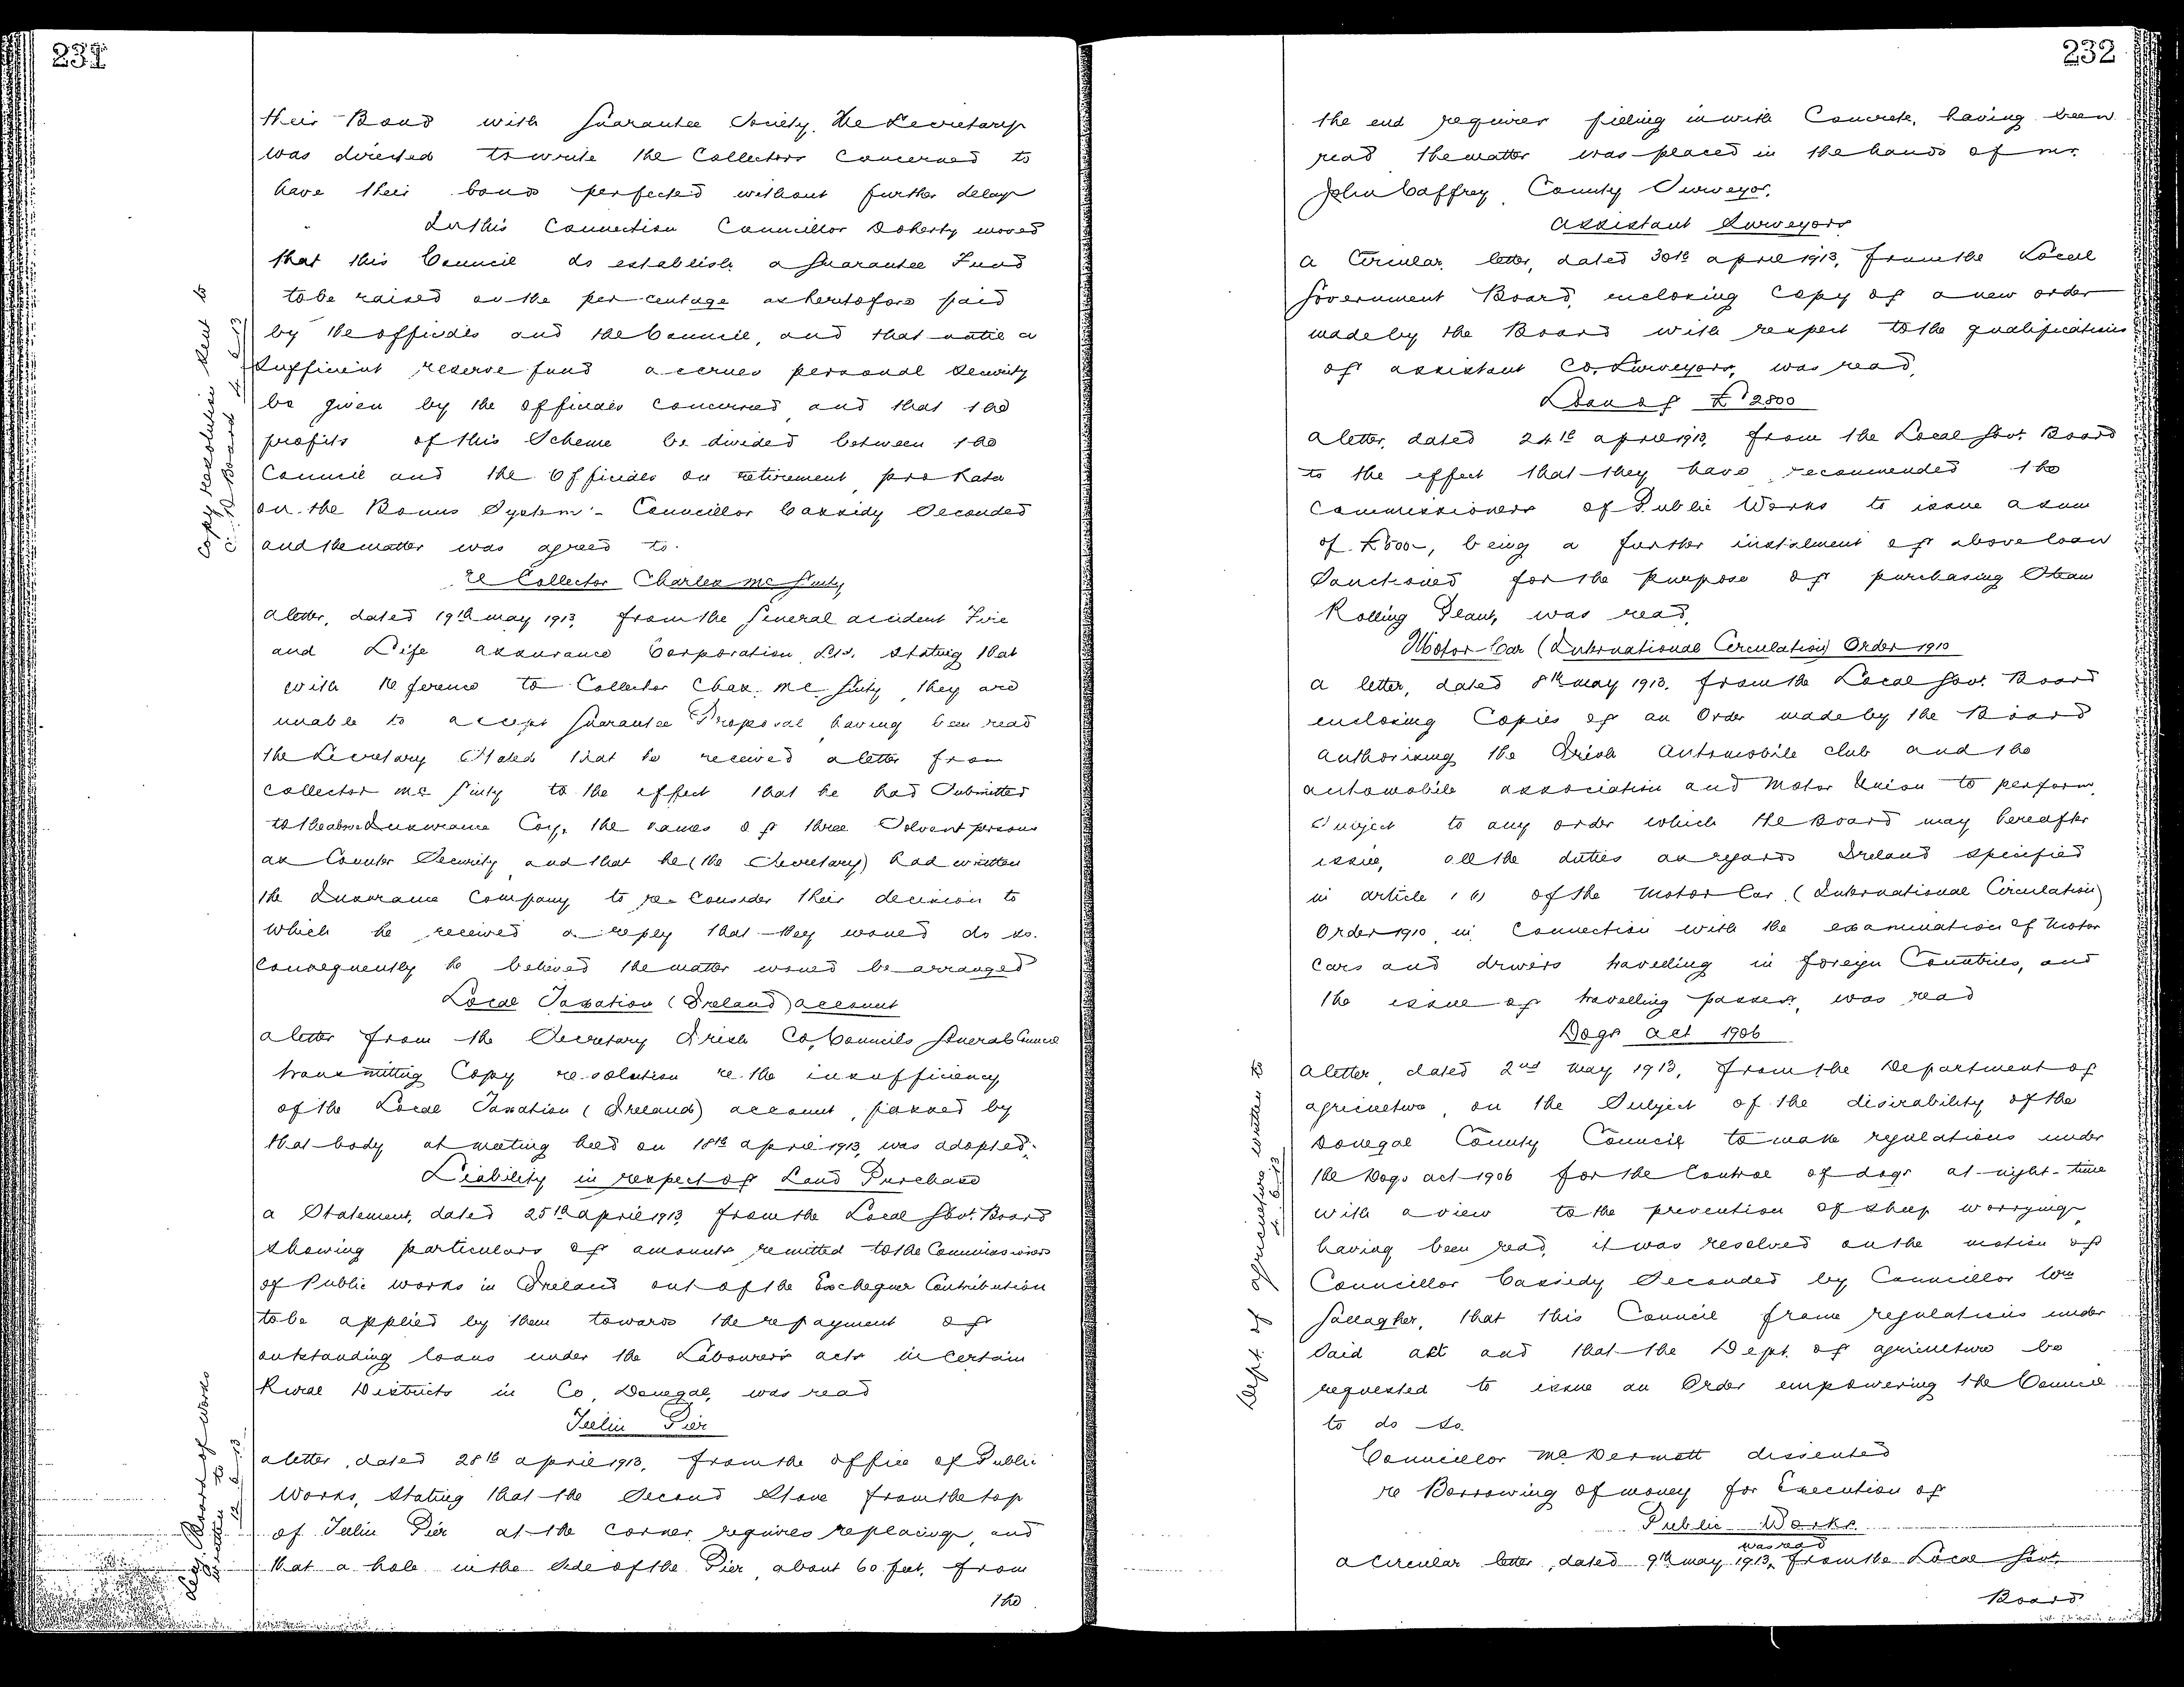 231
their Bond with Guarantee Society. The Secretary
was directed to write the Collectors concerned to
have their bonds perfected without further delay
In this Connection Councillor Doherty moved
that this Council do establish a Guarantee Fund
to be raised on the per-centage as heretofore paid
by the officials and the Council, and that until a
sufficient reserve fund accrues personal security
be given by the officials concerned and that the
profits of this Scheme be divided between the
Council and the Officials on retirement, pro Rata
on the Bonus System - Councillor Cassidy Seconded
and the matter was agreed to.
Copy resolution sent to
C. D Board 4.6.13
re Collector Charles McGinty
a letter, dated 19th may 1913, from the General accident Fire
and Life assurance Corporation Ltd. stating that
with Reference to Collector Chas. McGinty, they are
unable to accept Guarantee Proposal having been read
the Secretary Stated that he received a letter from
collector McGinty to the effect that he had Submitted
to the above Insurance Coy. the names of three Solvent persons
as Counter Security and that he (the Secretary) had written
the Insurance Company to re-consider their decision to
which he received a reply that they would do so.
Consequently he believed the matter would be arranged
Local Taxation (Ireland) account
a letter from the Secretary Irish Co. Councils General Council
transmitting Copy resolution re the insufficiency
of the Local Taxation (Ireland) account, passed by
that body at meeting held on 18th april 1913, was adopted.
Liability in respect of Land Purchase
a Statement, dated 25th april 1913 from the Local Govt. Board
showing particulars of amounts remitted to the Commissioners
of Public works in Ireland out of the Exchequer Contribution
to be applied by them towards the repayment of
outstanding loans under the Labourers acts in certain
Rural Districts in Co. Donegal, was read
Teelin Pier
a letter, dated 28th april 1913, from the office of Public
Works, stating that the Second Stone from the top
of Teelin Pier at the corner requires replacing, and
that a hole in the side of the Pier, about 60 feet, from
the
Board of works
written to
12.6.13
232
the end requires filling in with Concrete, having been
read the matter was placed in the hands of mr.
John Caffrey County Surveyor.
assistant Surveyors
a Circular letter, dated 30th april 1913, from the Local
Government Board, enclosing copy of a new order
made by the Board with respect to the qualifications
of assistant Co. Surveyors, was read.
Loan of £12800
a letter, dated 24th april 1913, from the Local Govt. Board
to the effect that they have recommended the
Commissioners of Public Works to issue a sum
of £500, being a further instalment of above loan
Sanctioned for the purpose of purchasing Steam
Rolling Plant, was read.
Motor-Car (International Circulation) Order 1910
a letter, dated 8th may 1913, from the Local Govt. Board
enclosing Copies of an Order made by the Board
authorising the Irish automobile club and the
automobile association and motor union to perform,
subject to any order which the Board may hereafter
issue, all the duties as regards Ireland specified
in article 1 of the motor Car (International Circulation)
Order 1910 in connection with the examination of motor
cars and drivers travelling in foreign Countries, and
the issue of travelling passes, was read
Dogs act 1906
a letter, dated 2nd may 1913, from the Department of
agriculture, on the Subject of the desirability of the
Donegal County Council to make regulations under
the Dogs act 1906 for the Control of dogs at night-time
with a view to the prevention of sheep worrying
having been read, it was resolved on the motion of
Councillor Cassidy Seconded by Councillor Wm
Gallagher, that this Council frame regulations under
Said act and that the Dept. of agriculture be
requested to issue an Order empowering the Council
to do so.
Dept. of agriculture written to
4.6.13
Councillor McDermott dissented
re Borrowing of money for Execution of
Public Works
was read
a circular letter, dated 9th may 1913, from the Local Govt.
Board